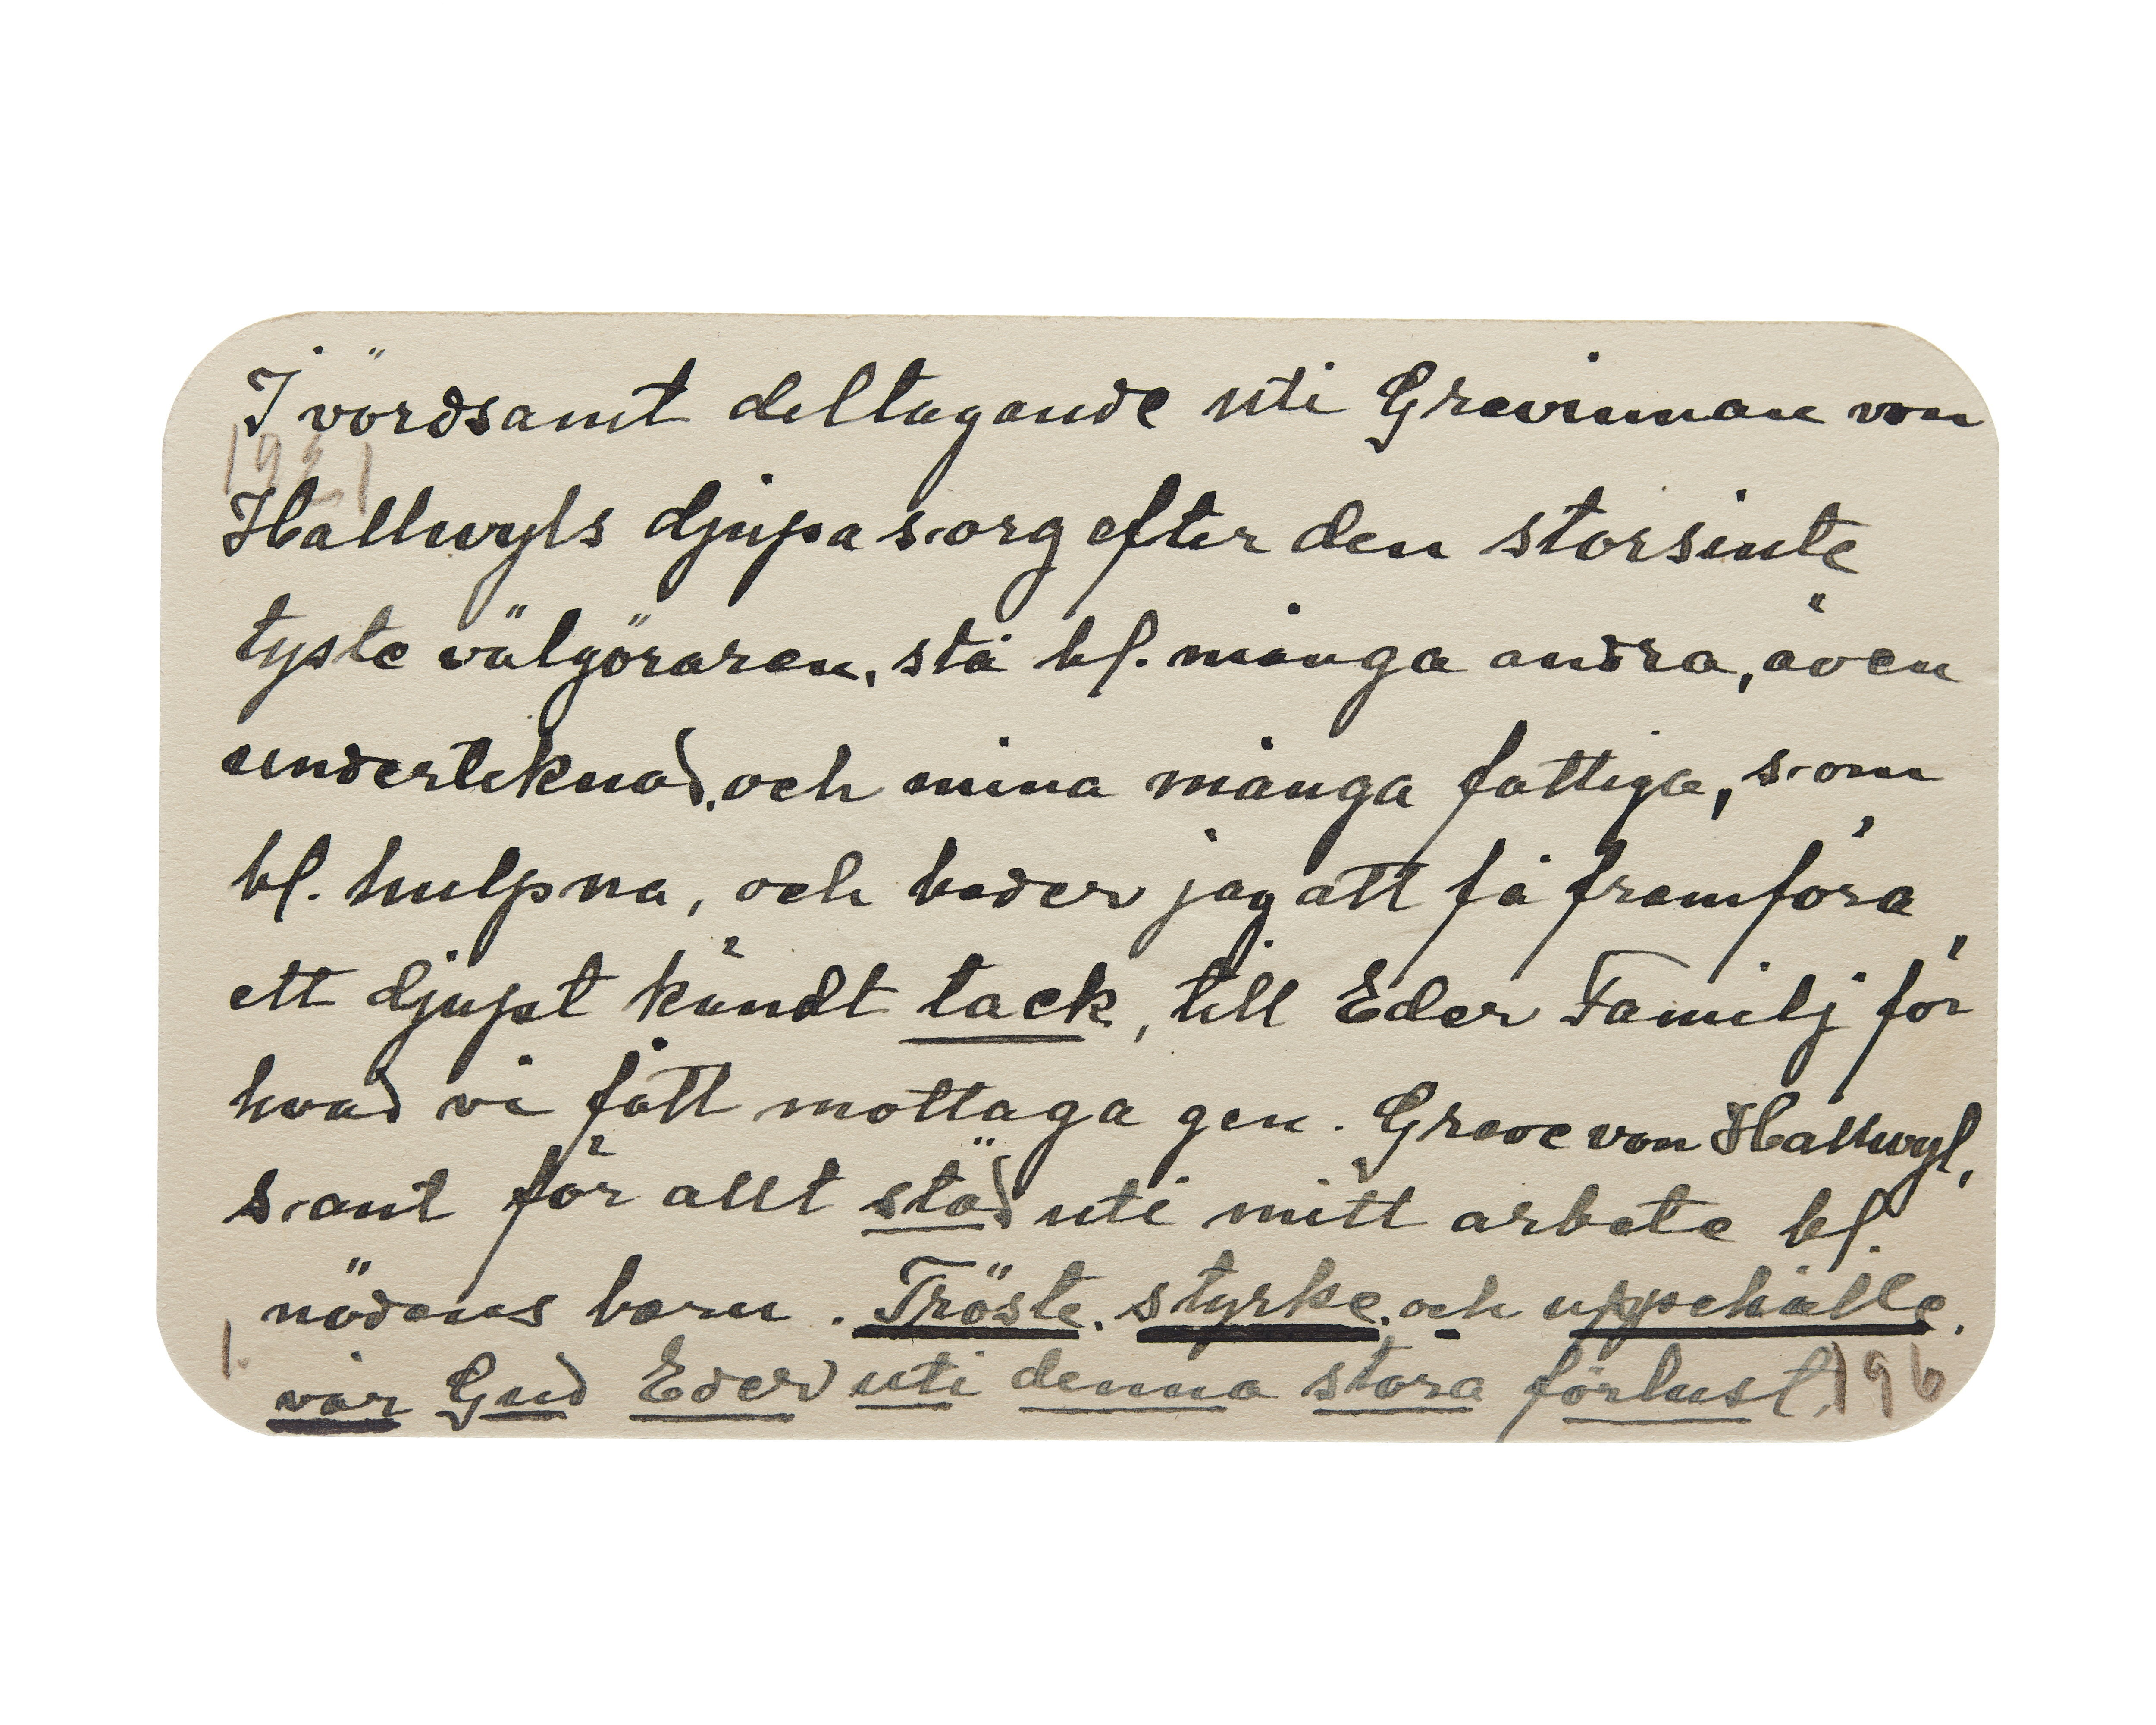 I vördsamt deltagande uti Grevinnan von
1921
Hallwyls djupa sorg efter den storsinte
tyste välgöraren, stå bl. många andra, även
underteknad, och mina många fattiga, som
bl. hulpna, och beder jag att få framföra
ett djupt kändt tack, till Eder Familj för
hvad vi fått mottaga gen. Greve von Hallwyl,
samt för allt stöd uti mitt arbete bl.
nödens barn. Tröste, styrke, och uppehålle,
1.
vår Gud Eder uti denna stora förlust, 196